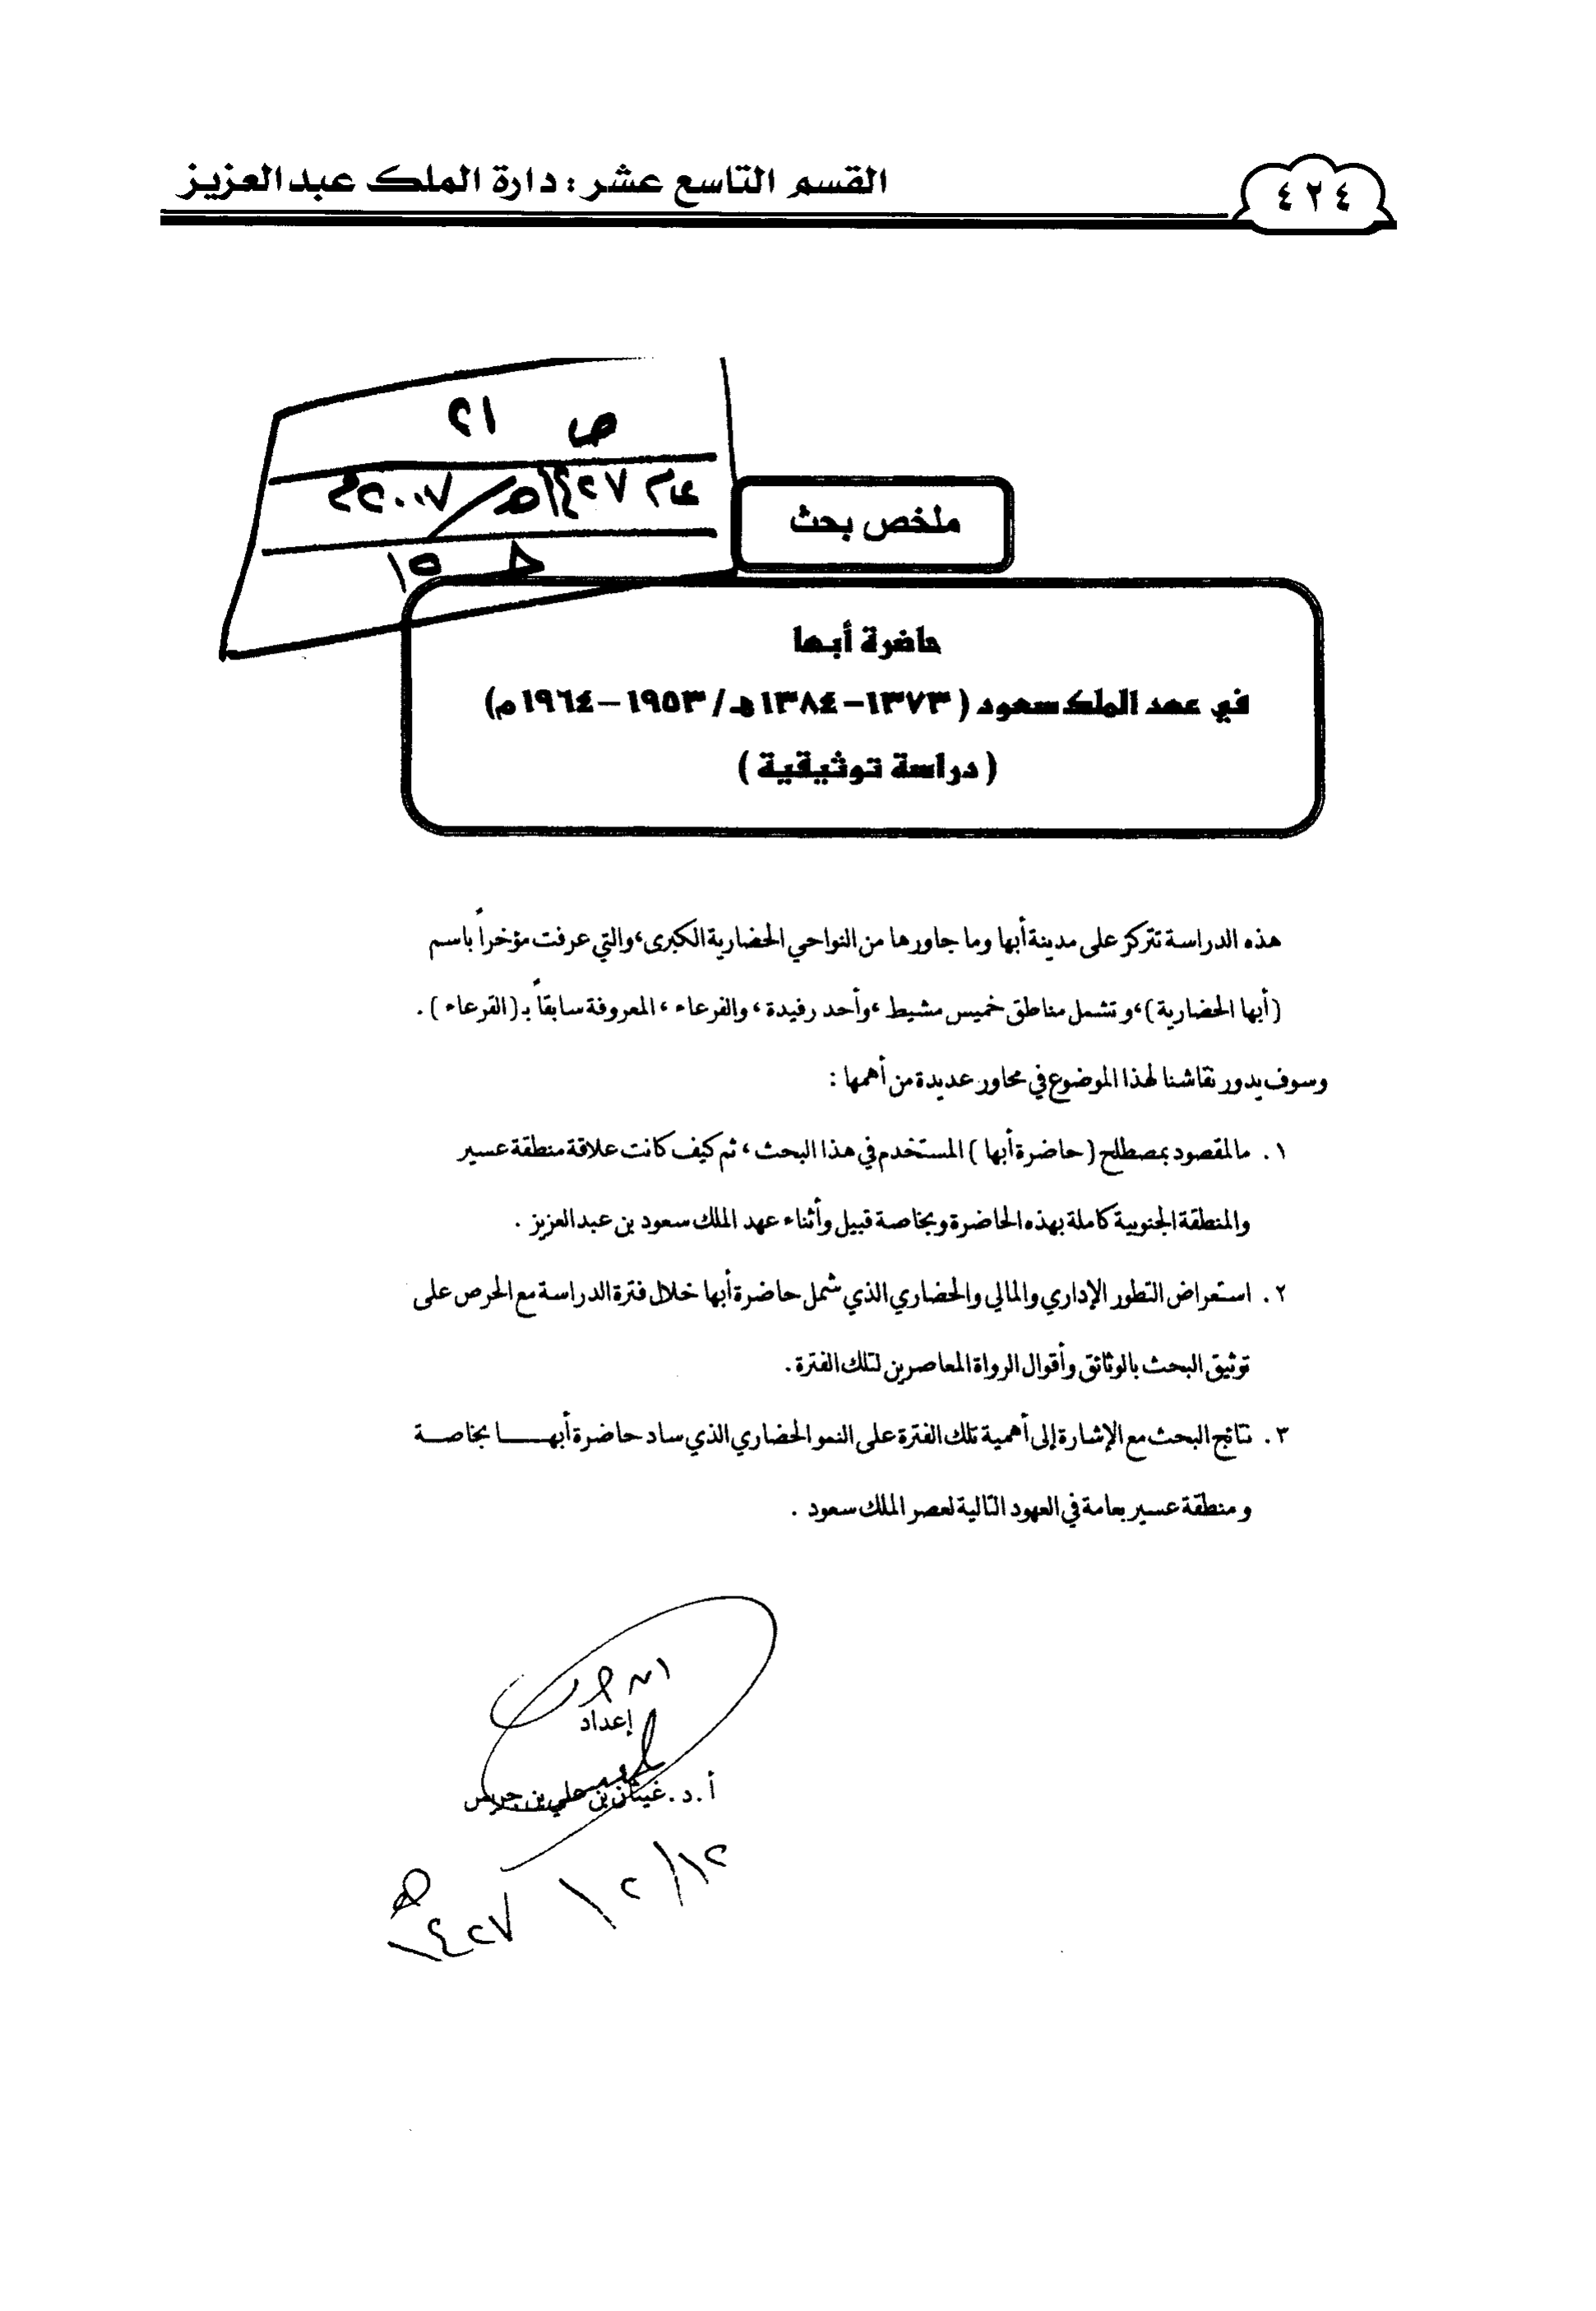 القسم التاسع عشر : دارة الملك عبدالعزيز
٤٢٤
ص ٢١
عام ١٤٢٧هـ/٢٠٠٧م
حـ ١٥
ملخص بحث
حاضرة أبها
في عهد الملك سعود ( ١٣٧٣-١٣٨٤هـ/ ١٩٥٣–١٩٦٤م)
( دراسة توثيقية )
هذه الدراسة تتركز على مدينة أبها وما جاورها من النواحي الحضارية الكبرى، والتي عرفت مؤخراً باسم
(أبها الحضارية)، وتشمل مناطق خميس مشيط ، وأحد رفيدة ، والفرعاء ، المعروفة سابقاً بـ ( القرعاء ) .
وسوف يدور نقاشنا لهذا الموضوع في محاور عديدة من أهمها :
١. مالمقصود بمصطلح ( حاضرة أبها ) المستخدم في هذا البحث ، ثم كيف كانت علاقة منطقة عسير
والمنطقة الجنوبية كاملة بهذه الحاضرة وبخاصة قبيل وأثناء عهد الملك سعود بن عبدالعزيز .
٢. استعراض التطور الإداري والمالي والحضاري الذي شمل حاضرة أبها خلال فترة الدراسة مع الحرص على
توثيق البحث بالوثائق وأقوال الرواة المعاصرين لتلك الفترة .
٣. نتائج البحث مع الإشارة إلى أهمية تلك الفترة على النمو الحضاري الذي ساد حاضرة أبهـــا بخاصــة
ومنطقة عسير بعامة في العهود التالية لعصر الملك سعود .
إعداد
أ . د . غيثان بن علي بن جريس
١٢/١٢/١٤٢٧هـ